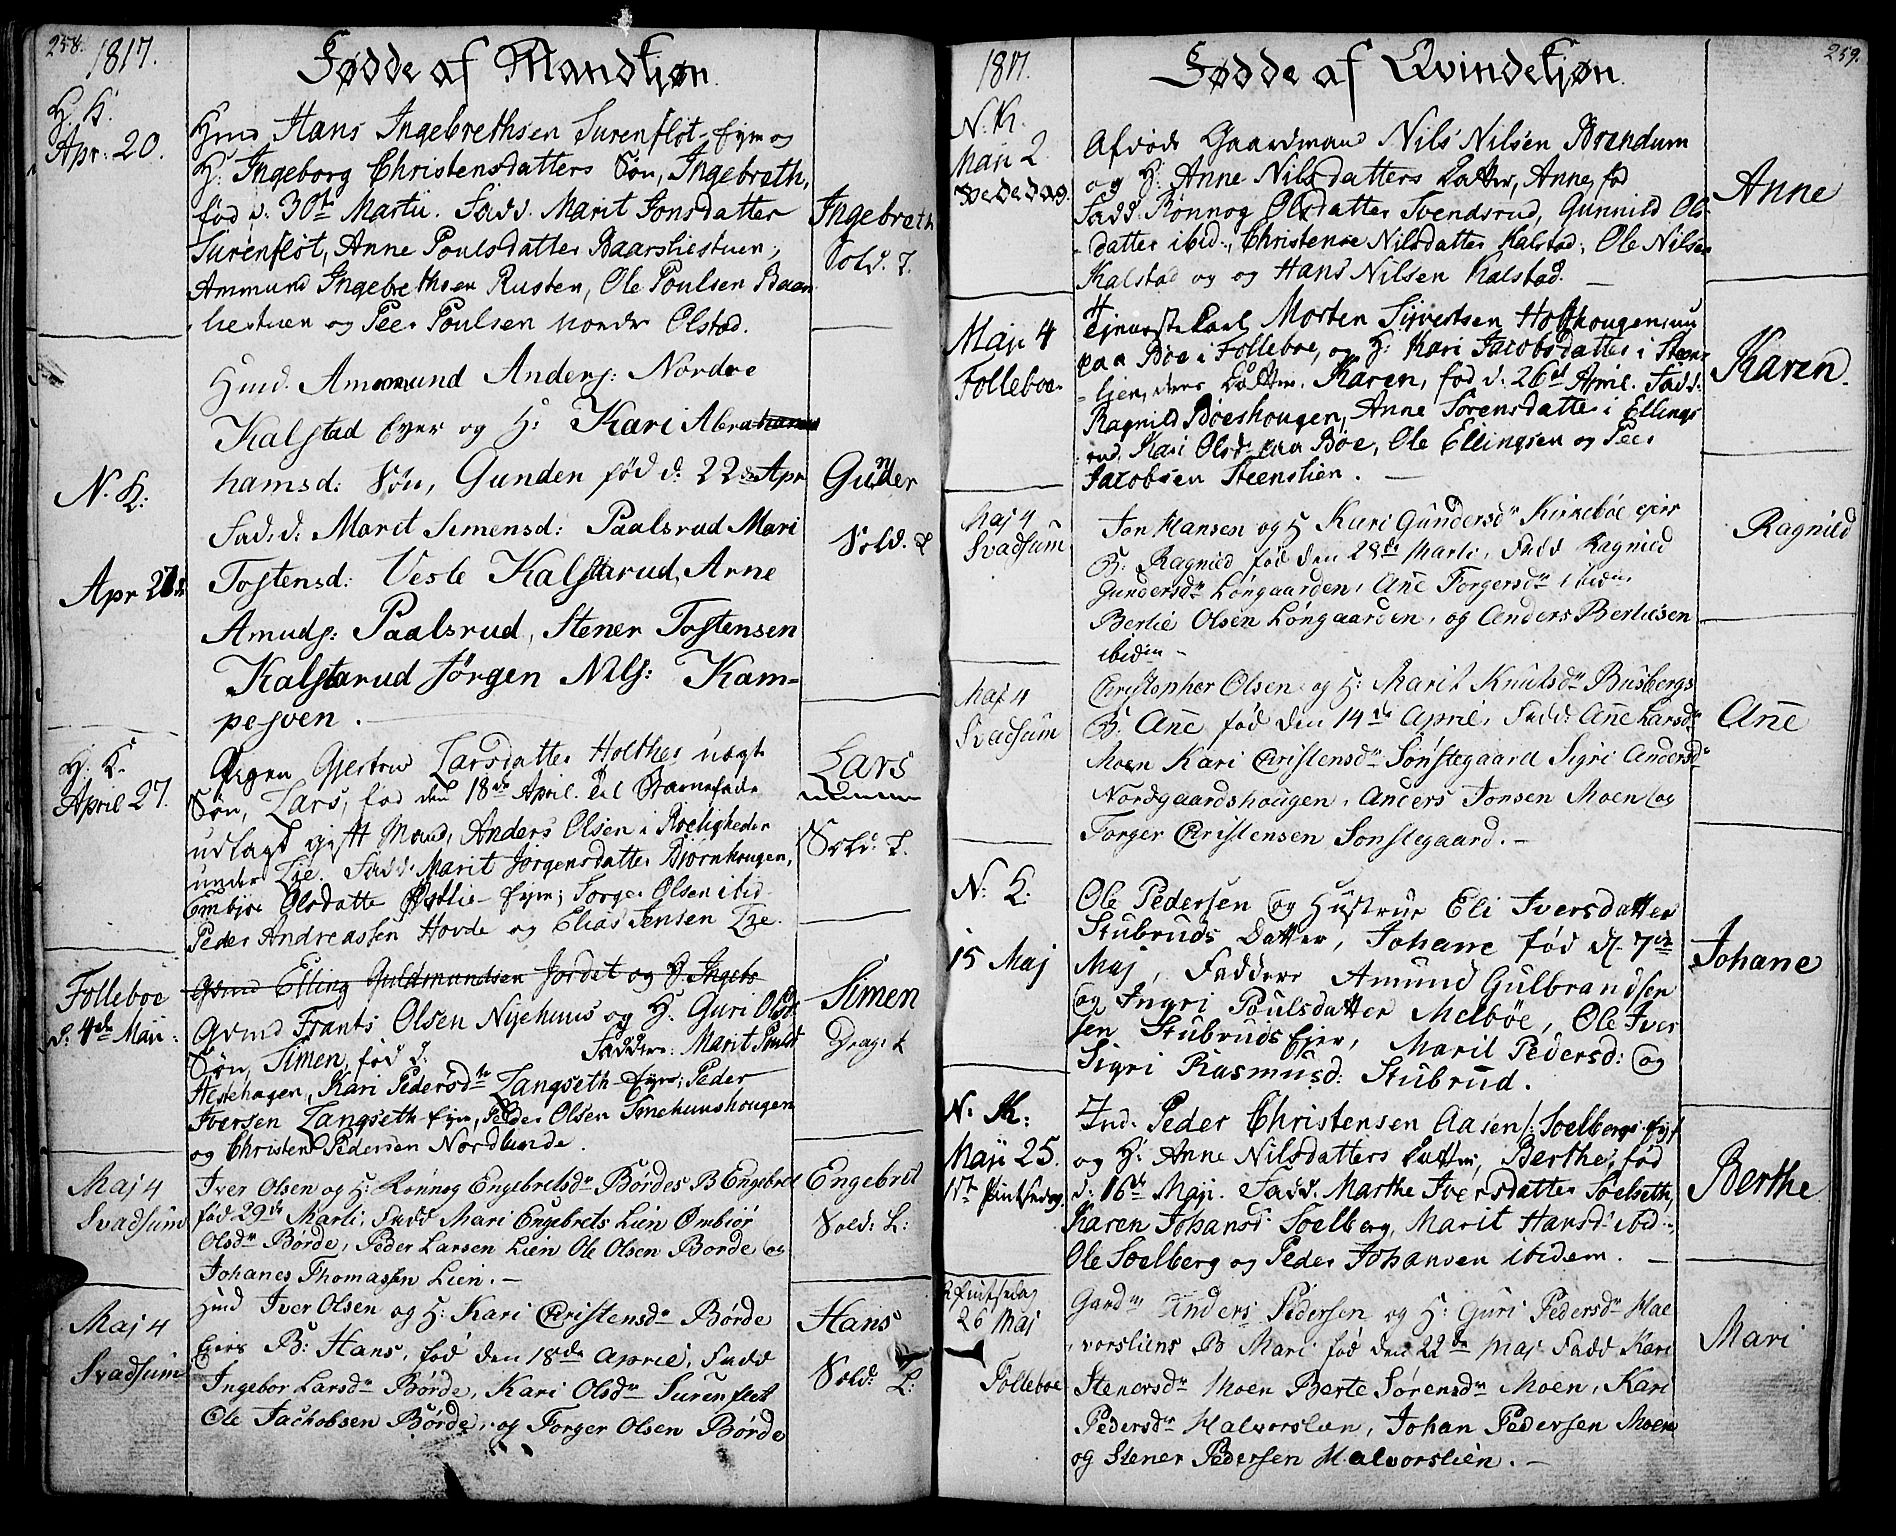 258.
1817.
Fødde af Mandkjøn.
H. K.
Apr: 20.
Hmd Hans Ingebrethsen Surenfløt - Eyer og
H: Ingeborg Christensdatters Søn, Ingebreth,
fød d: 30te Martii. Fadd. Marit Jonsdatter
Surenfløt, Anne Poulsdatter Baarsliestuen,
Ammund Ingebrethsen Rusten, Ole Poulsen Baars
liestuen og Peer Poulsen nordr Olstad.
Ingebreth
Sold. L.
N. K:
Apr 27de
Hmd. Ammund Anders: Nordre
Kalstad Eyer og H: Kari Abraham
hamsd: Søn, Gunden fød d: 22de Apr
Fad.d. Marit Simensd: Paalsrud Mari
Tostensd: Vesle Kalstarud, Arne
Amuds: Paalsrud, Stener Tostensen
Kalstarud Jørgen Nils: Kam-
pesven.
Gunder
Sold. L
H. K.
April 27.
Pigen Gjertrud Larsdatter Holthes uægt
Søn, Lars, fød den 18de April. Til Barnefader
udlagt gift Mand, Anders Olsen i Roeligheden
under Lie. Fadd. Marit Jørgensdatter Bjørnhougen,
Embjør Olsdatter Østlie Eyer; Torger Olsen ibid.
Peder Andreassen Hovde og Elias Jensen Lie.
Lars
Sold: L.
Folleboe
d: 4de Maji.
Gmd Elling Guldmundsen Jordet og H. Ingeb-
Gvmd Frants Olsen Nyehuus og H. Guri Olsd
Søn, Simen, fød d. Faddere: Marit Poulsd
Hestehagen, Kari Pedersdtr Langseth Eyer; Peder
Iversen Langseth Eyer, Peder Olsen Smehuushougen
og Christen Pedersen Nordlunde.
Simen
Drag. L
Maj 4
Svadsum
Iver Olsen og H: Rønnog Engebretsdr Børdes B Engebret
fød 29de Marti, Fadd Mari Engebrets Lien Ombiør
Olsdr Børde, Peder Larsen Lien Ole Olsen Borde og
Johanes Thomassen Lien. -
Engebret
Sold: L:
Maj 4
Svadsum
Hmd Iver Olsen og H: Kari Christensdr Børde
Eiers B: Hans, fød den 18de April, Fadd
Ingebor Larsdr Børde, Kari Olsdr Surenfleet
Ole Jachobsen Børde, og Torger Olsen Børde
Hans
Sold: L:
259.
1817.
Fødde af Qvindekjøn.
N. K.
Maji 2
Bededag.
Afdøde Gaardmand Nils Nilsen Brendum
og H: Anne Nilsdatters Datter, Anne, fød
Fadd. Rønnog Olsdatter Svendsrud, Gunnild Ols
datter ibid., Christense Nilsdatter Kalstad, Ole Nilsen
Kalstad og og Hans Nilsen Kalstad.
Anne
Maji 4
Folleboe
Tjeneste Karl Morten Sijvertsen Holthougen, nu
paa Bøe i Folleboe, og H: Kari Jacobsdatter i Steens
lien, deres Datter, Karen, fød d. 26de April. Fadd.
Ragnild Bøeshougen, Anne Sørensdatter i Ellings
rud, Kari Olsd: paa Bøe, Ole Ellingsen og Peer
Jacobsen Steenslien.
Karen.
Maj 4
Svadsum
Jon Hansen og H Kari Gundersdr Kirkebøe eier
B: Ragnild fød den 28de Marti, Fadd Ragnild
Gundersdr Løngaarden, Ane Torgersdr ibiden
Bertie Olsen Løngaarden, og Anders Bertiesen
ibiden -
Ragnild
Maj 4
Svadsum
Christopher Olsen og H: Marit Knutsdr Busbergs
B. Ane fød den 14de April, Fadd: Ane Larsdr
Moen Kari Christensdr Sønstegaard Sigri Andersdr
Nordgaardshougen, Anders Jonsen Moen og
Torger Christensen Sonstegaard. -
Ane
N: K.
15 Maj
Ole Pedersen og Hustrue Eli Iversdatter
Stubruds Datter, Johane fød d. 7de
Maj, Faddere Amund Gulbrandsen
og Ingri Poulsdatter Melbøe, Ole Iver
sen Stubruds Ejer, Marit Pedersd: og
Sigri Rasmusd: Stubrud.
Johane
N. K:
Maji 25.
1ste Pintsedag.
Ind. Peder Christensen Aasen /: Soelbergs Eye/
og H: Anne Nilsdatters Datter, Berthe, fød
d: 16de Maji. Fadd. Marthe Iversdatter Soelseth,
Karen Johansd: Soelberg, Marit Hansd: ibid.,
Ole Soelberg og Peder Johansen ibidem.
Berthe
2 Pintsedag
26 Maj
Folleboe
Gardm Anders Pedersen og H: Guri Pedersdr Hal
vorsliens B Mari fød den 22de Maj Fadd Kari
Stenersdr Moen Berte Sørensdr Moen, Kari
Pedersdr Halvorslien, Johan Pedersen Moen
og Stener Pedersen Halvorslien. -
Mari